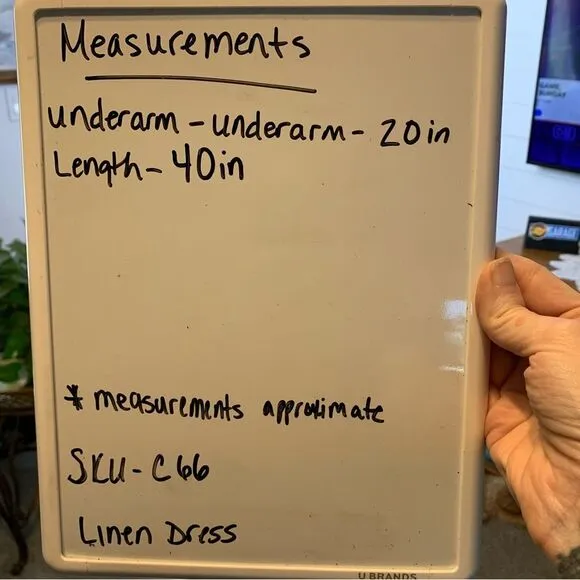 Measurements
underarm - underarm - 20in
Length - 40in
* measurements approximate
SKU - C66
Linen Dress
U BRANDS
GARAGE